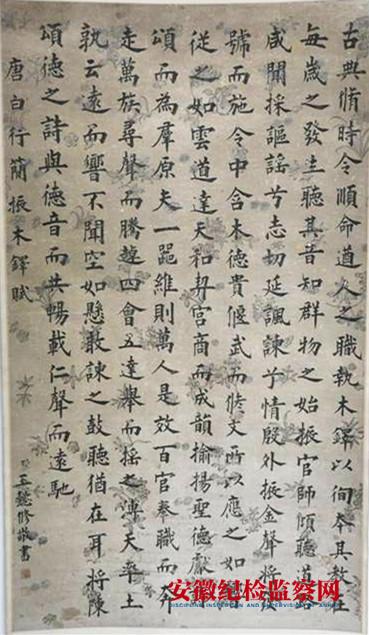 古典脩時令順命道人之職執木鐸以徇奉其教在
每歲之發生聽其音知群物之始振官師傾聽遒
咸聞採謳謠兮志切延諷諫兮情殷外振金聲將發
號而施令中含木德貴偃武而脩文所以應之如響
從之如雲道達天和契宮商而成韻揄揚聖德獻
頌而為羣原夫一器維則萬人是效百官奉職而奔
走萬族尋聲而騰趠四會五達舉而搖之薄天率土
孰云遠而響不聞空如懸敢諫之鼓聽猶在耳將陳
頌德之詩與德音而共暢載仁聲而遠馳
唐白行簡振木鐸賦
王懿修敬書
安徽纪检监察网